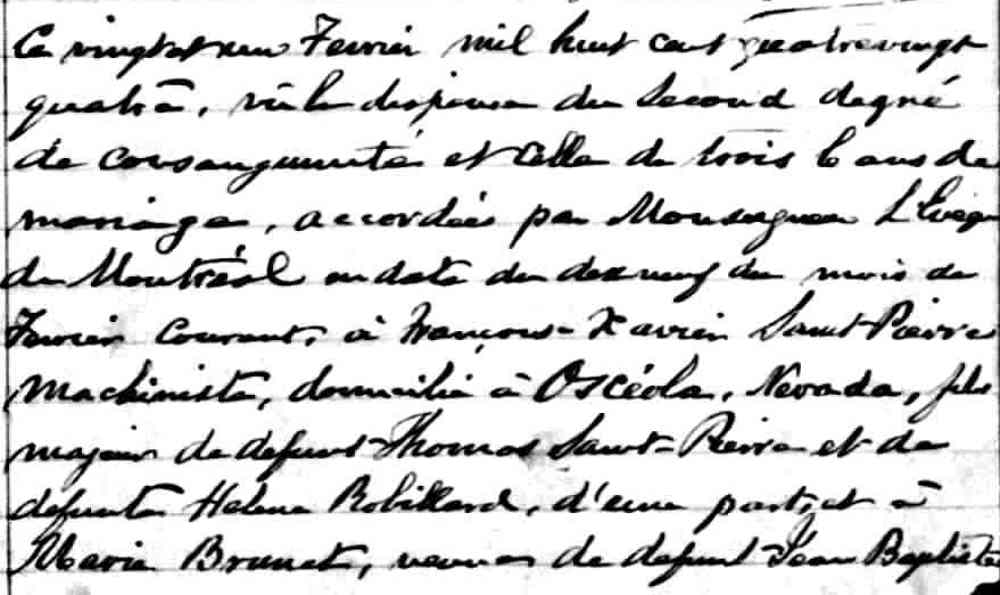 Le vingt et un Fevrier mil huit cent quatrevingt
quatre, vu la dispense du second degré
de consanguinité et celle de trois bans de
mariage, accordées par Monseigneur l'Evêq
de Montréal en date du dix neuf du mois de
Fevrier courant, à François-Xavier Saint-Pierre
Machiniste, domicilié à Oscéola, Névada, fils
majeur de defunt Thomas Saint-Pierre et de
defunte Helene Robillard, d'une part, et à
Marie Brunet, veuve de defunt Jean Baptiste